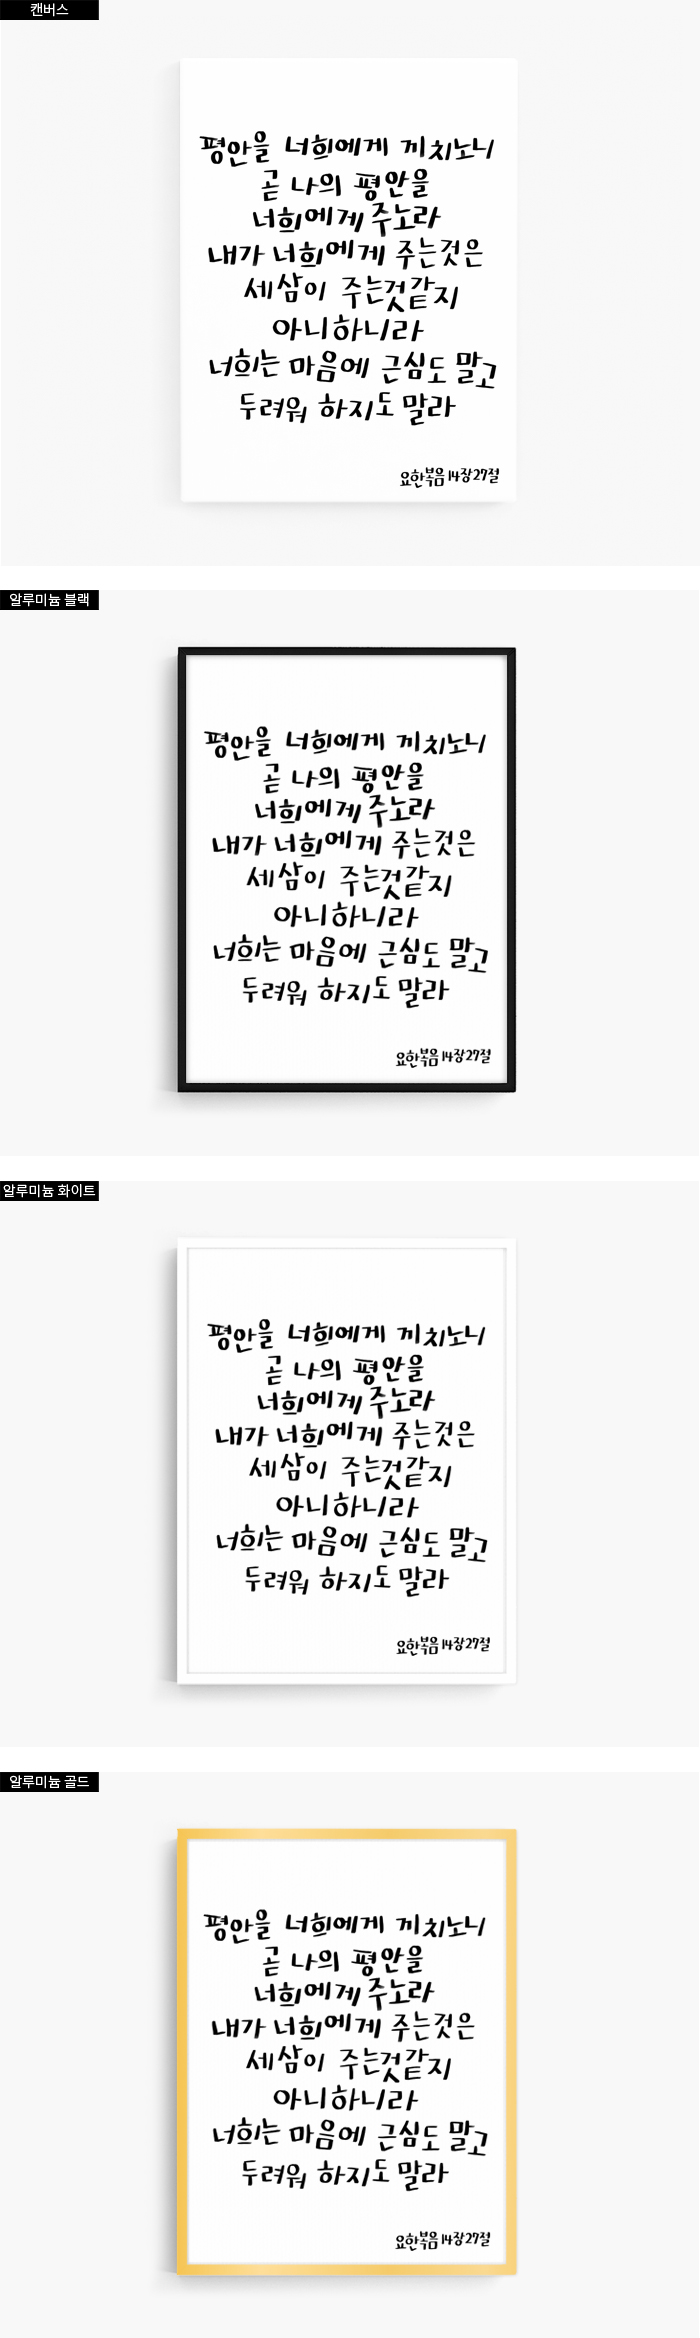 캔버스
평안을 너희에게 끼치노니
곧 나의 평안을
너희에게 주노라
내가 너희에게 주는것은
세상이 주는것같지
아니하니라
너희는 마음에 근심도 말고
두려워 하지도 말라
요한복음 14장27절
알루미늄 블랙
평안을 너희에게 끼치노니
곧 나의 평안을
너희에게 주노라
내가 너희에게 주는것은
세삼이 주는것같지
아니하니라
너희는 마음에 근심도 말고
두려워 하지도 말라
요한복음 14장27절
알루미늄 화이트
평안을 너희에게 끼치노니
곧 나의 평안을
너희에게 주노라
내가 너희에게 주는것은
세삼이 주는것같지
아니하니라
너희는 마음에 근심도 말고
두려워 하지도 말라
요한복음 14장27절
알루미늄 골드
평안을 너희에게 끼치노니
곧 나의 평안을
너희에게 주노라
내가 너희에게 주는것은
세삼이 주는것같지
아니하니라
너희는 마음에 근심도 말고
두려워 하지도 말라
요한복음 14장27절